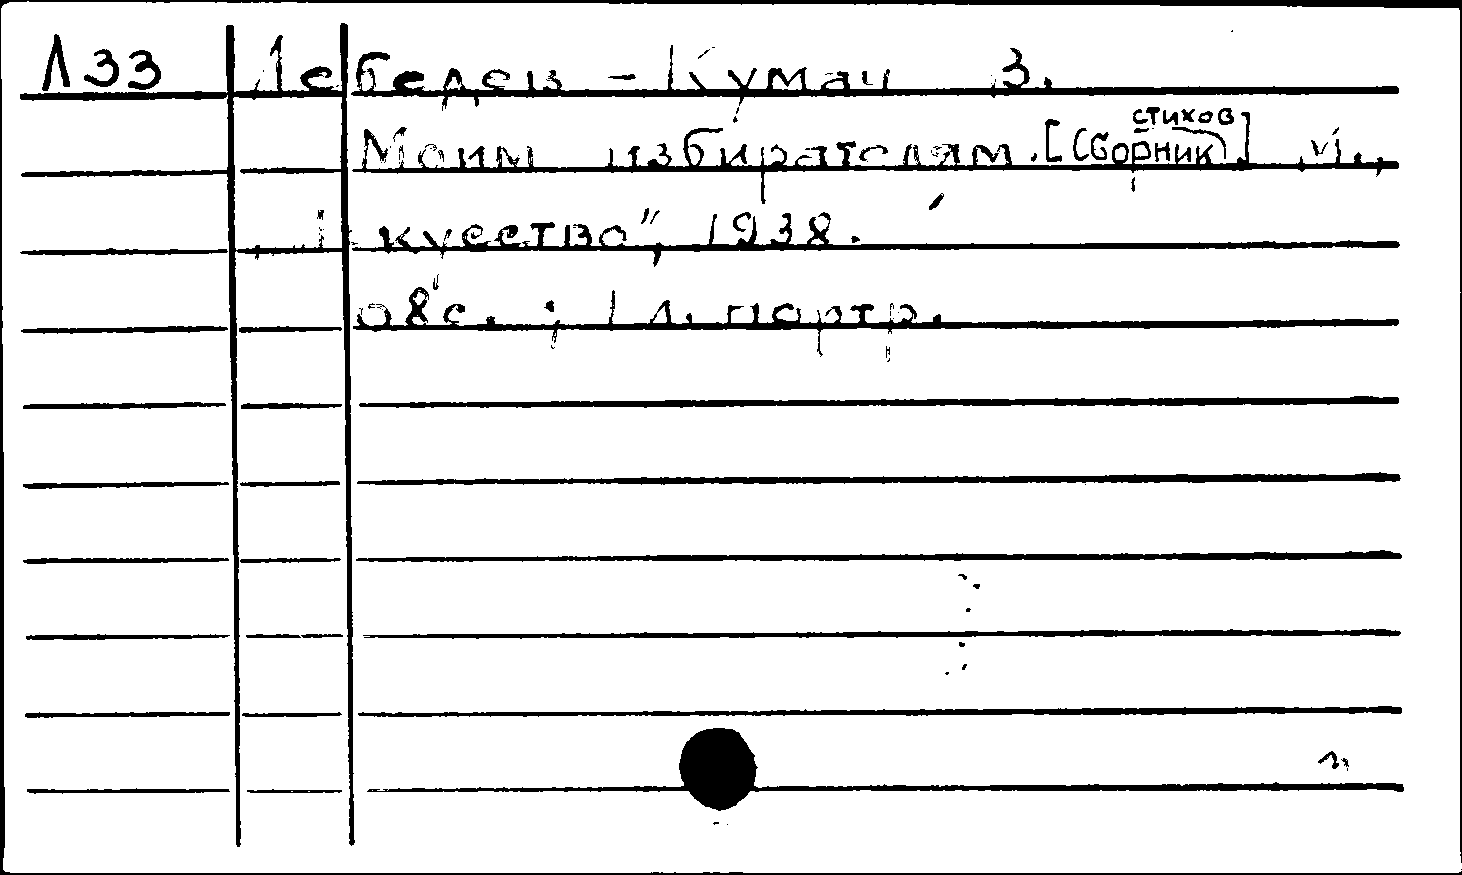 Л33 Лебедев-Кумач В.
Моим избирателям. [Сборник стихов] М.,
„Искусство", 1938.
68 с.; 1 л. портр.